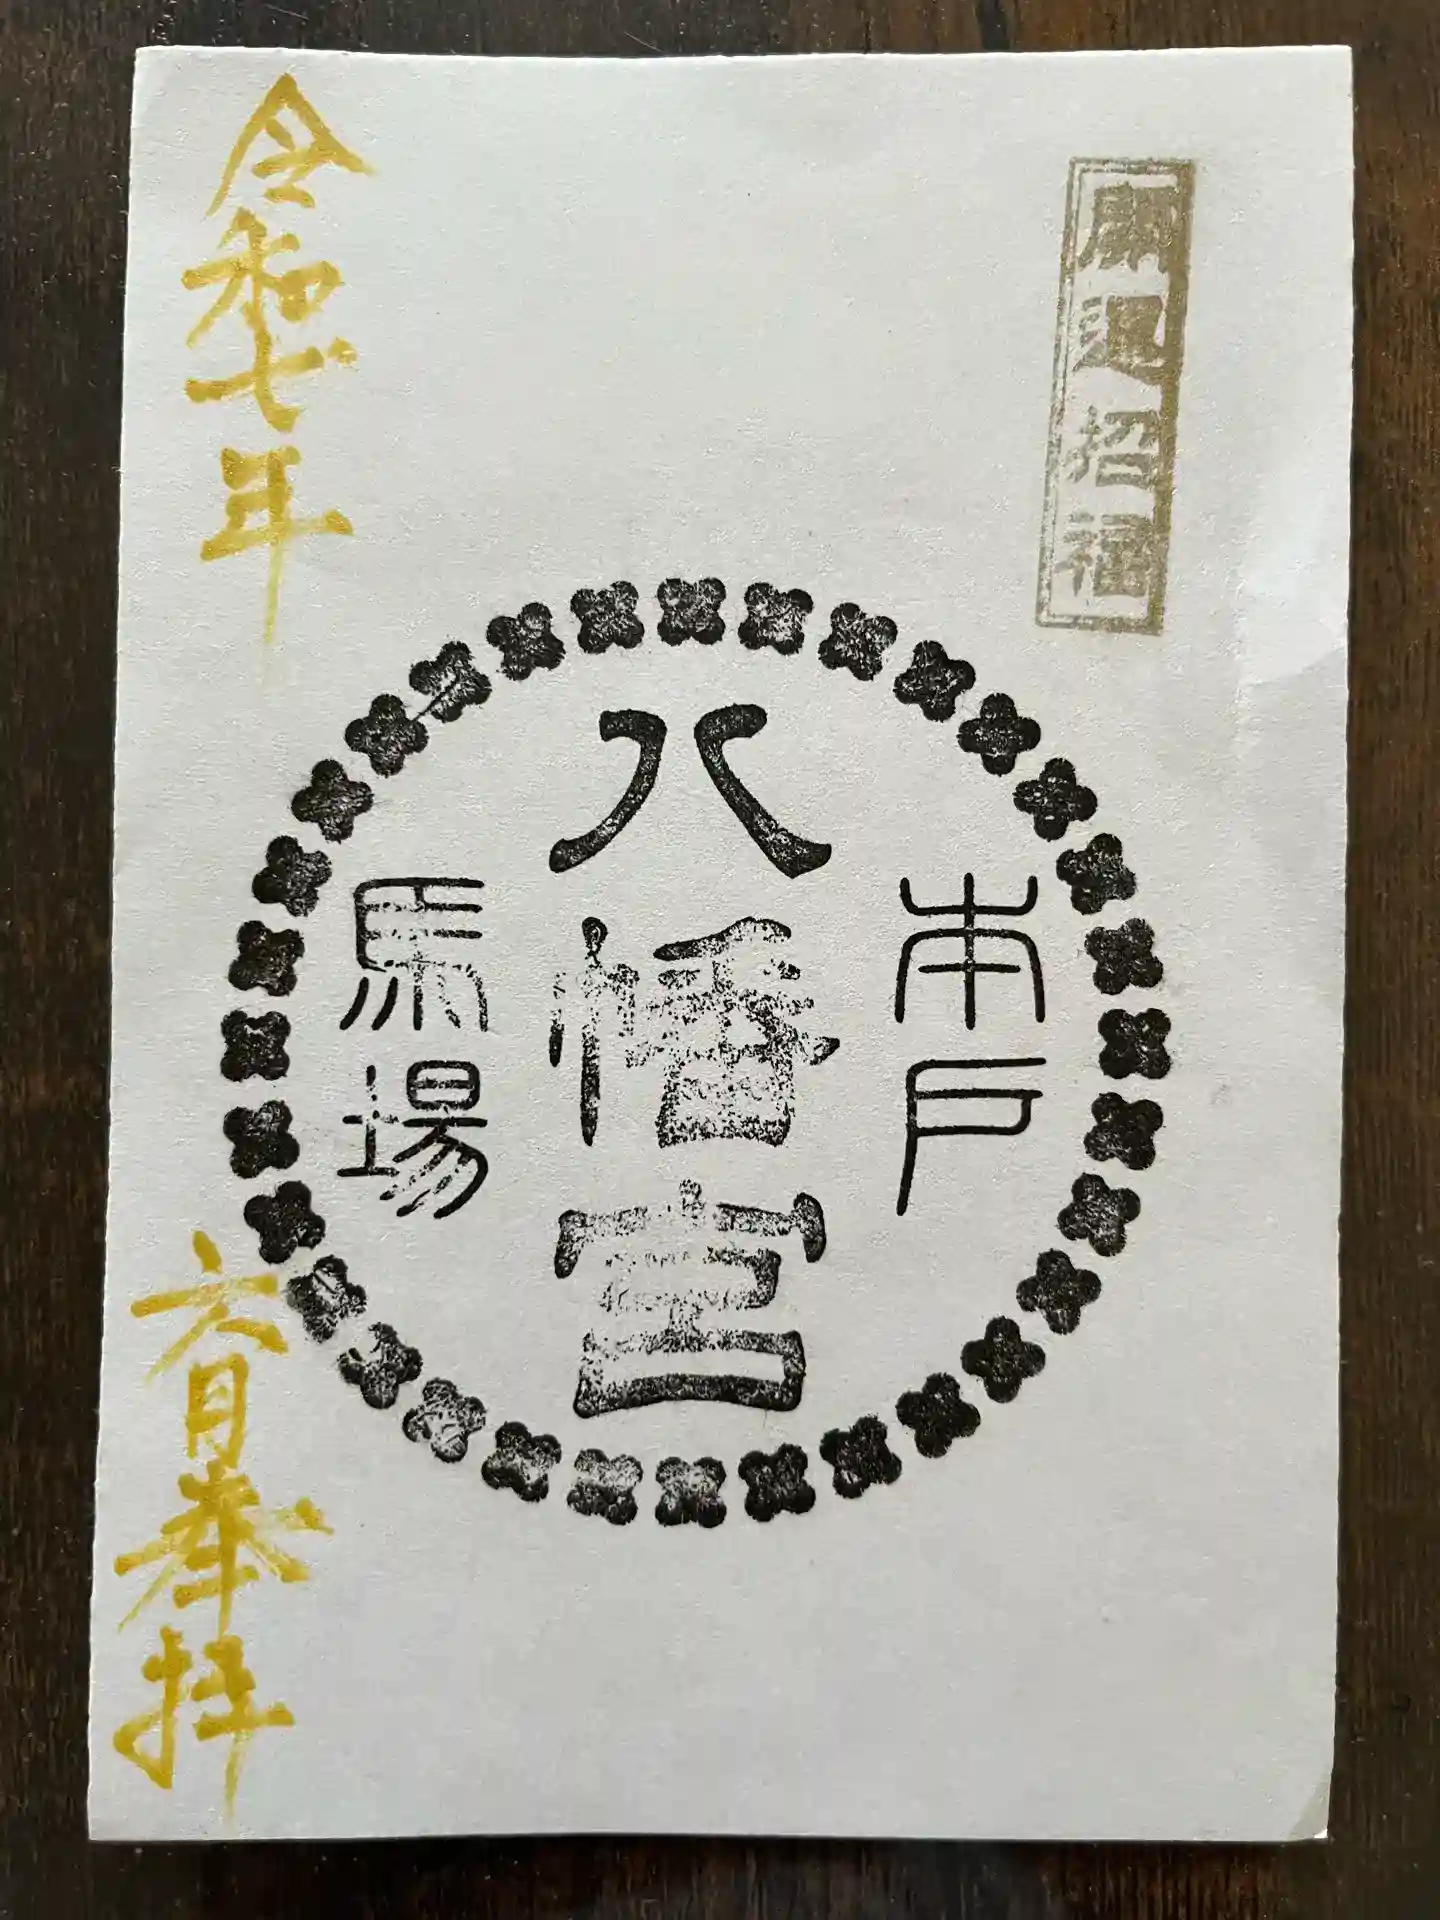 開運招福
本戸
八幡宮
馬場
令和七年
六月奉拝